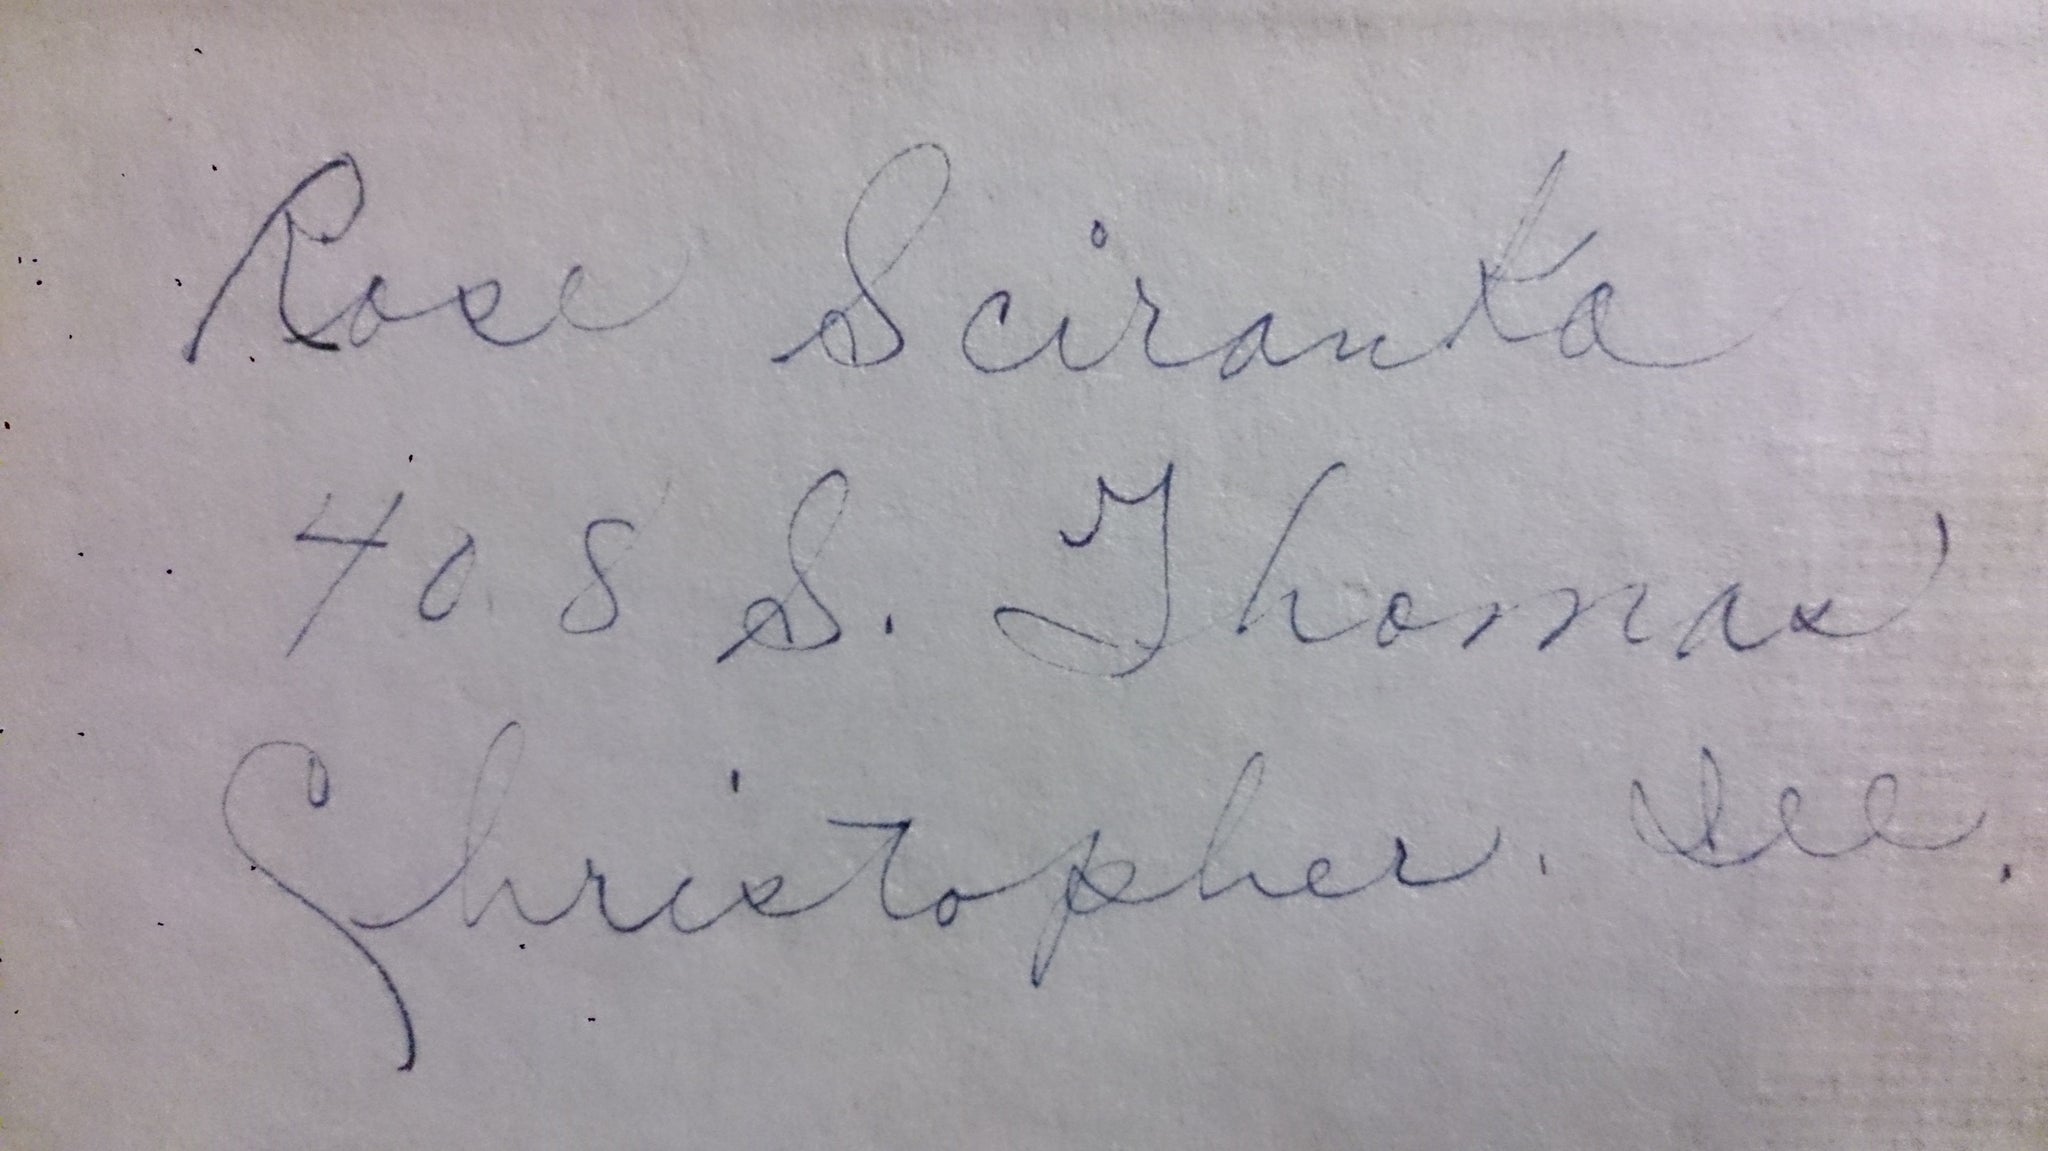 Rose Sciranka
408 S. Thomas
Christopher. Ill.